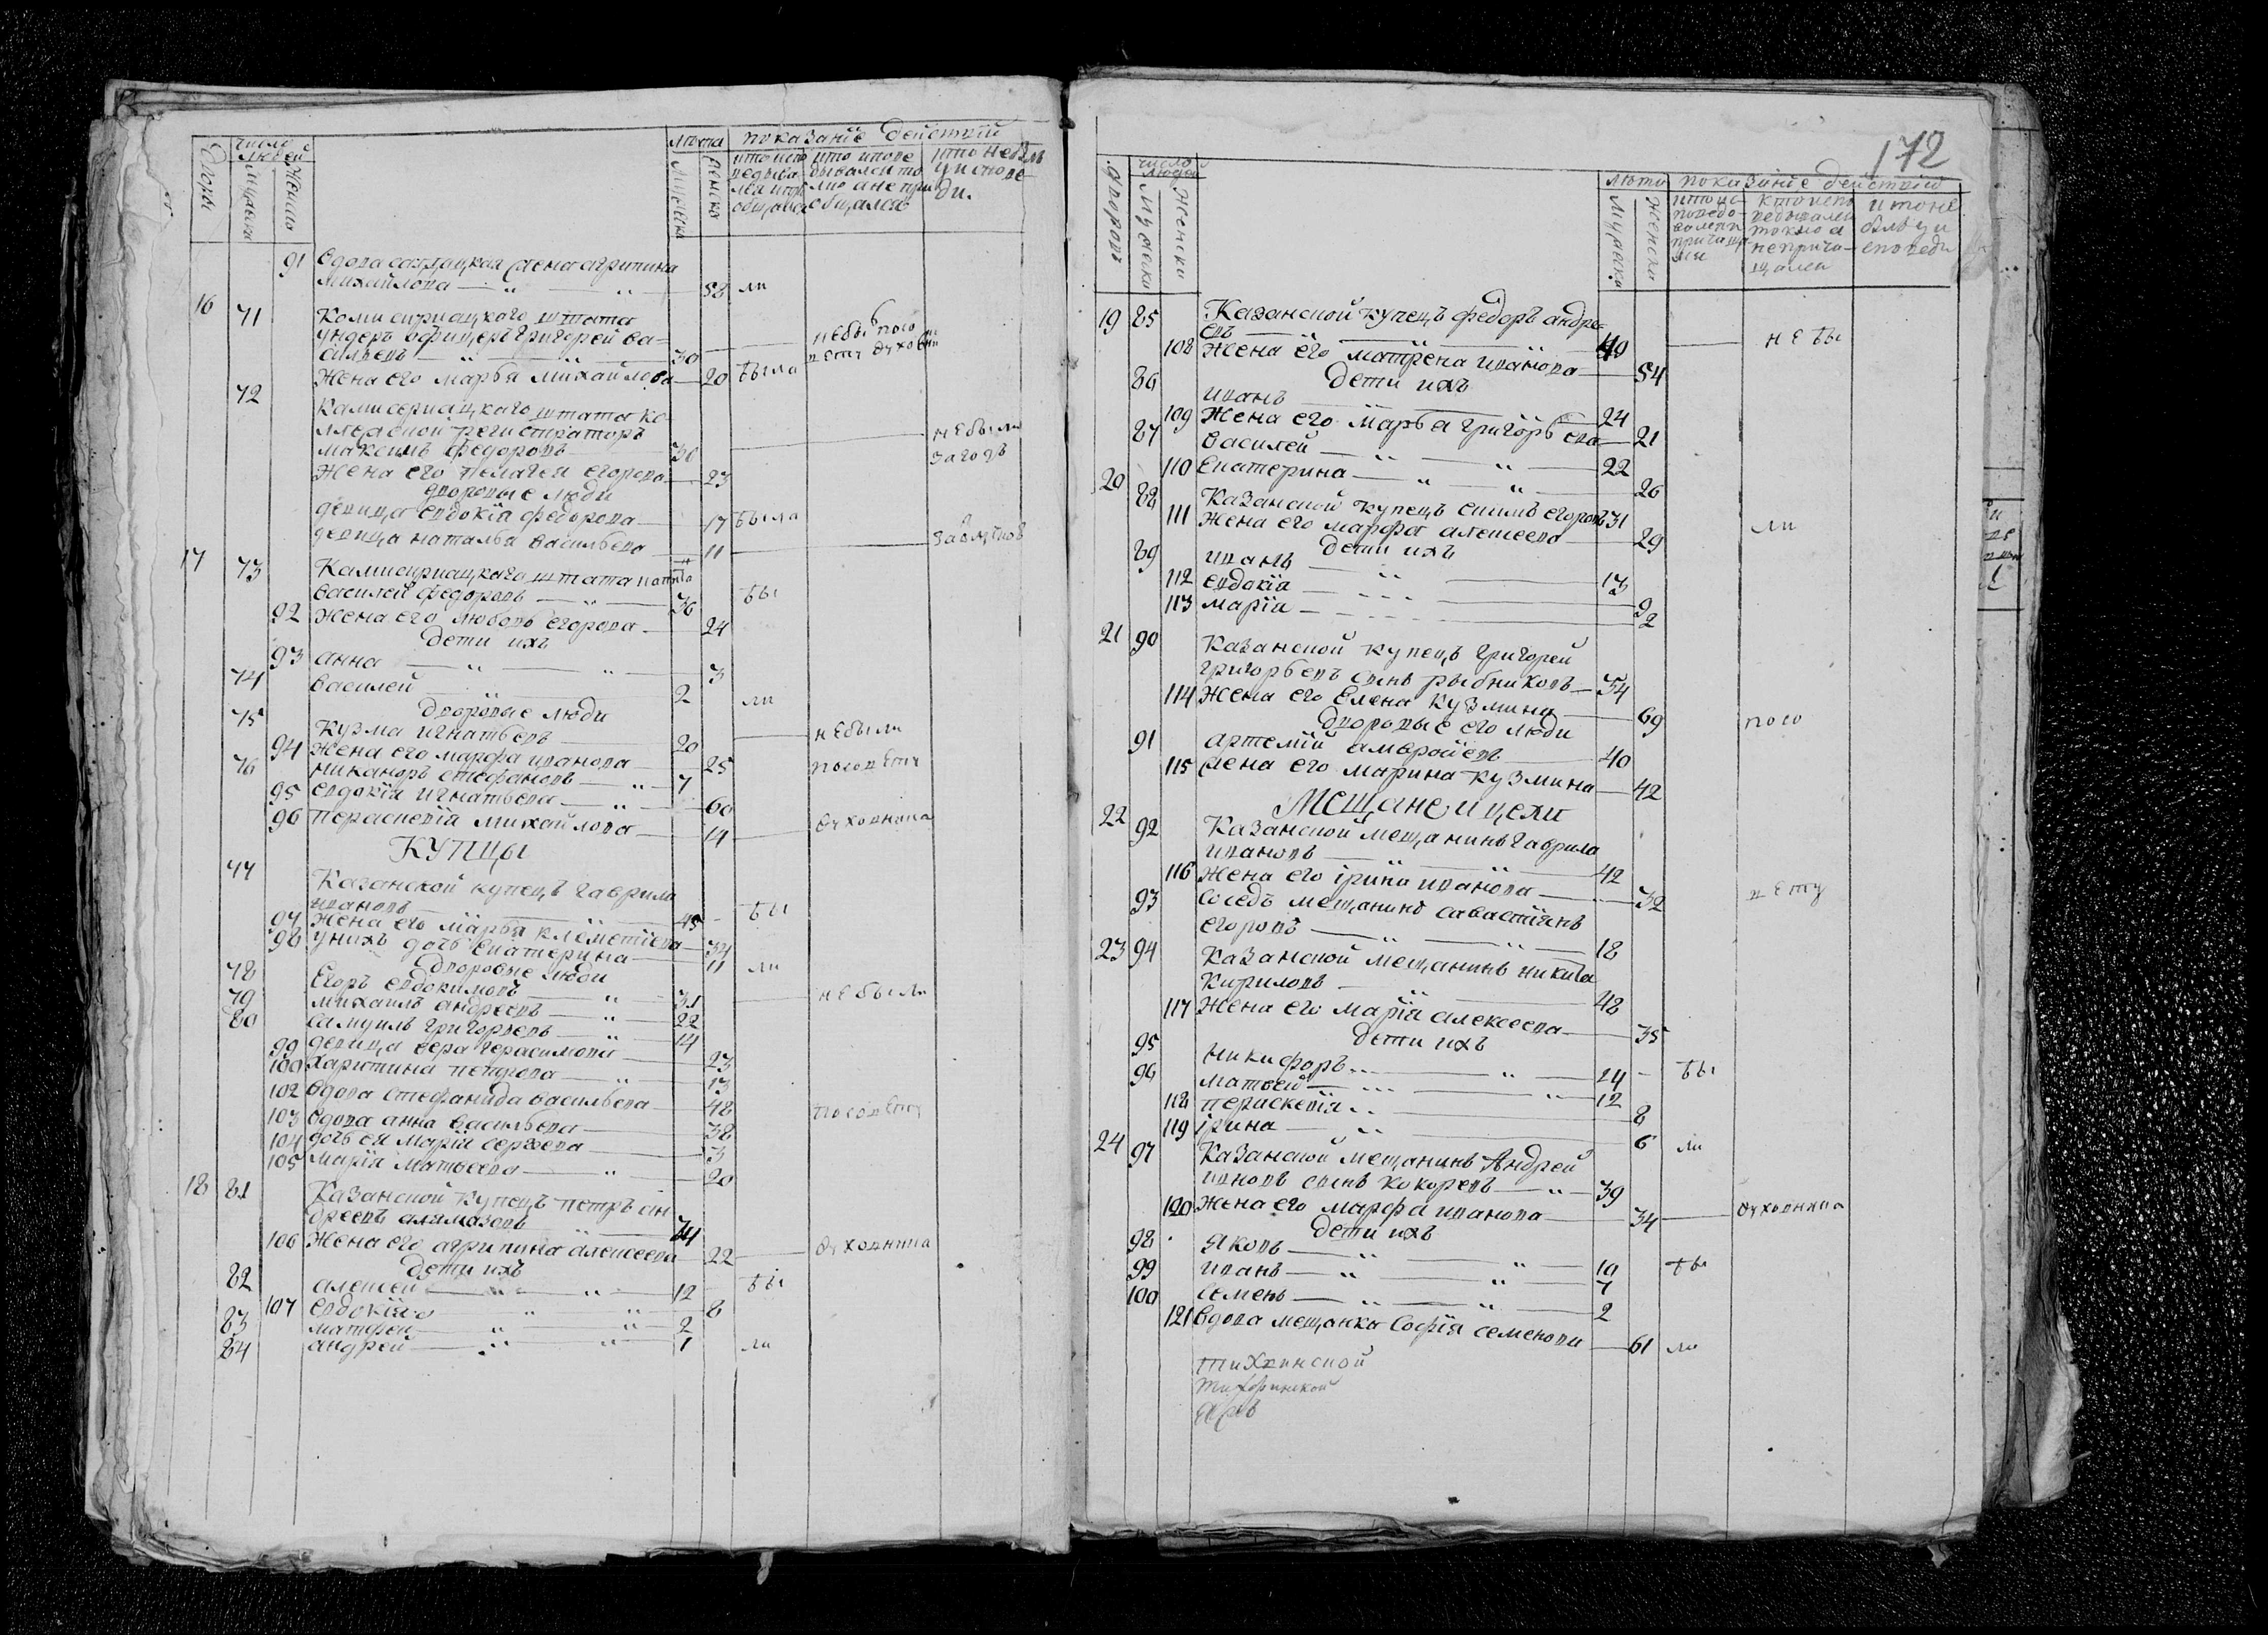 число людей лѣта показанїе действїй
дворы мужеска женска мужеска женска
91 Вдова салдацкая жена агрипина
михайлова 58 ли
16 71 Комисриацкаго штата
ундеръ офицеръ григорей ва-
сильевъ 30 небы пого
вету духовни
Жена его марья михайлова 20 была
72 Камисериацкаго штата ко
лежской регистраторъ
максимъ федоровъ 30 небыли
за годъ
жена его пелагея егорова 23
дворовые люди
девица евдокїя федорова 17 была
девица наталья васильева 11
17 73 Камисриацкаго штата
василей федоровъ 36 бы
92 жена его любовь егорова 24
дети ихъ
93 анна 3
74 василей 2 ли
дворовые люди
75 Кузма игнатьевъ 20 небыли
94 жена его марфа иванова 25
76 никаноръ стефановъ 7 поговету
95 евдокїя игнатьева 60
96 перасковїя михайлова 14 духовника
КУПЦЫ
77 Казанской купецъ гаврила
ивановъ 45 бы
97 жена его марья клеметїева 34
98 у нихъ дочь екатерина 11 ли
дворовые люди
78 Егоръ евдокимовъ 31 небыли
79 михаилъ андреевъ 22
80 самуилъ григорьевъ 14
99 девица вера герасимова 23
100 харитина петрова 13
102 вдова стефанида васильева 48 поговету
103 вдова анна васильева 38
104 дочь ея марїя сергеева 3
105 марїя матвеева 20
18 81 Казанской купецъ петръ ан
дреевъ алямазовъ 34
106 жена его агрипина алексеева 22 духовника
дети ихъ
82 алексей 12 бы
107 евдокїя 8
83 матфей 2
84 андрей 1 ли
172
число людей лѣта показанїе действїй
дворовъ мужеска женски мужеска женски
19 85 Казанской купецъ федоръ андре-
евъ 40 небы
108 жена его матрена иванова 54
дети ихъ
86 иванъ 24
109 жена его марья григорьева 21
87 василей 22
110 екатерина 26
20 88 Казанской купецъ егоровъ 31
111 жена его марфа алексеева 29 ли
дети ихъ
89 иванъ 13
112 евдокїя 9
113 марїя 2
21 90 Казанской купецъ григорей
григорьевъ сынъ рыбниковъ 54
114 жена его елена кузмина 69 пого
дворовые его люди
91 артемїй амвросїевъ 40
115 жена его марина кузмина 42
Мещане и цехи
22 92 Казанской мещанинъ гаврила
ивановъ 42
116 жена его їрина иванова 32 вету
93 соседъ мещанинъ савастїянъ
егоровъ 18
23 94 Казанской мещанинъ никита
кириловъ 48
117 жена его марїя алексеева 35
дети ихъ
95 никифоръ 14 бы
96 матвей 12
118 перасковїя 8
119 їрина 6 ли
24 97 Казанской мещанинъ Андрей
ивановъ сынъ кокоревъ 39
120 жена его марфа иванова 34 духовника
дети ихъ
98 яковъ 10 бы
99 иванъ 7
100 семенъ 2
121 вдова мещанка софїя семенова 61 ли
тихвинской